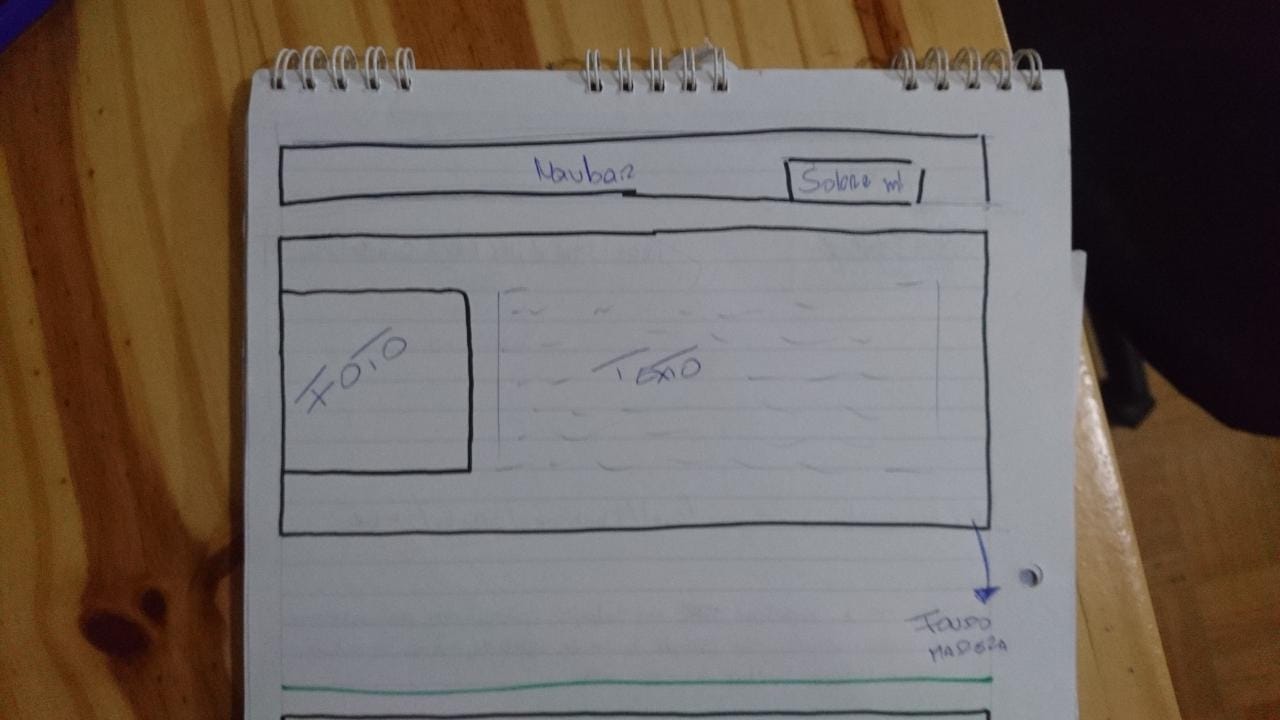 Navbar
Sobre mi
FOTO
TEXTO
FONDO
MADERA